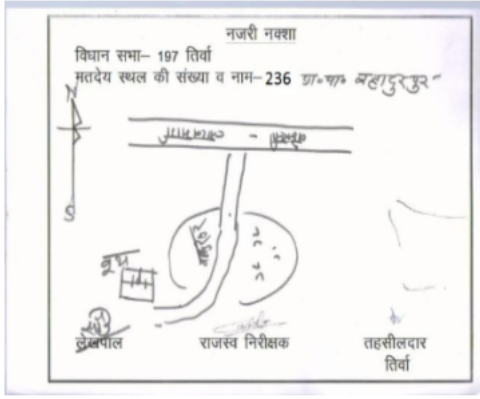 नजरी नक्शा
विधान सभा– 197 तिर्वा
मतदेय स्थल की संख्या व नाम–236 प्रा० पा० बहादुरपुर
N
S
बूथ
लेखपाल
राजस्व निरीक्षक
तहसीलदार
तिर्वा